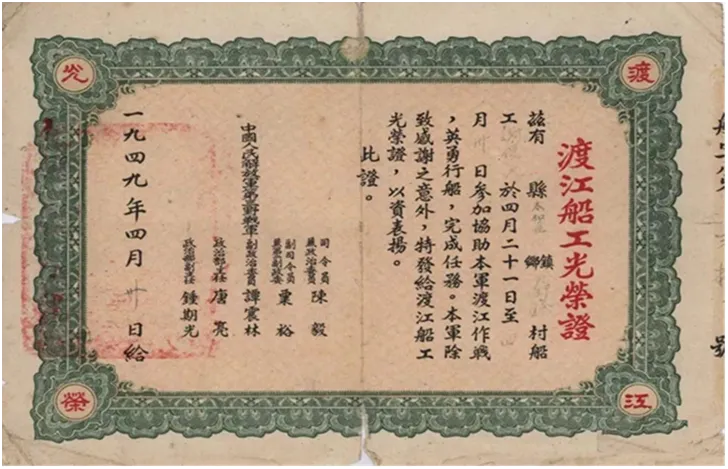 渡
江
光
榮
渡江船工光榮證
茲有 縣 鄉鎮 村船
工 於四月二十一日至
月 卅 日參加協助本軍渡江作戰
,英勇行船,完成任務。本軍除
致感謝之意外,特發給渡江船工
光榮證,以資表揚。
此證。
中國人民解放軍第三野戰軍
司令員兼政治委員 陳毅
副司令員 粟裕
副政治委員 譚震林
政治部主任 唐亮
政治部副主任 鍾期光
一九四九年四月 卅 日給
號